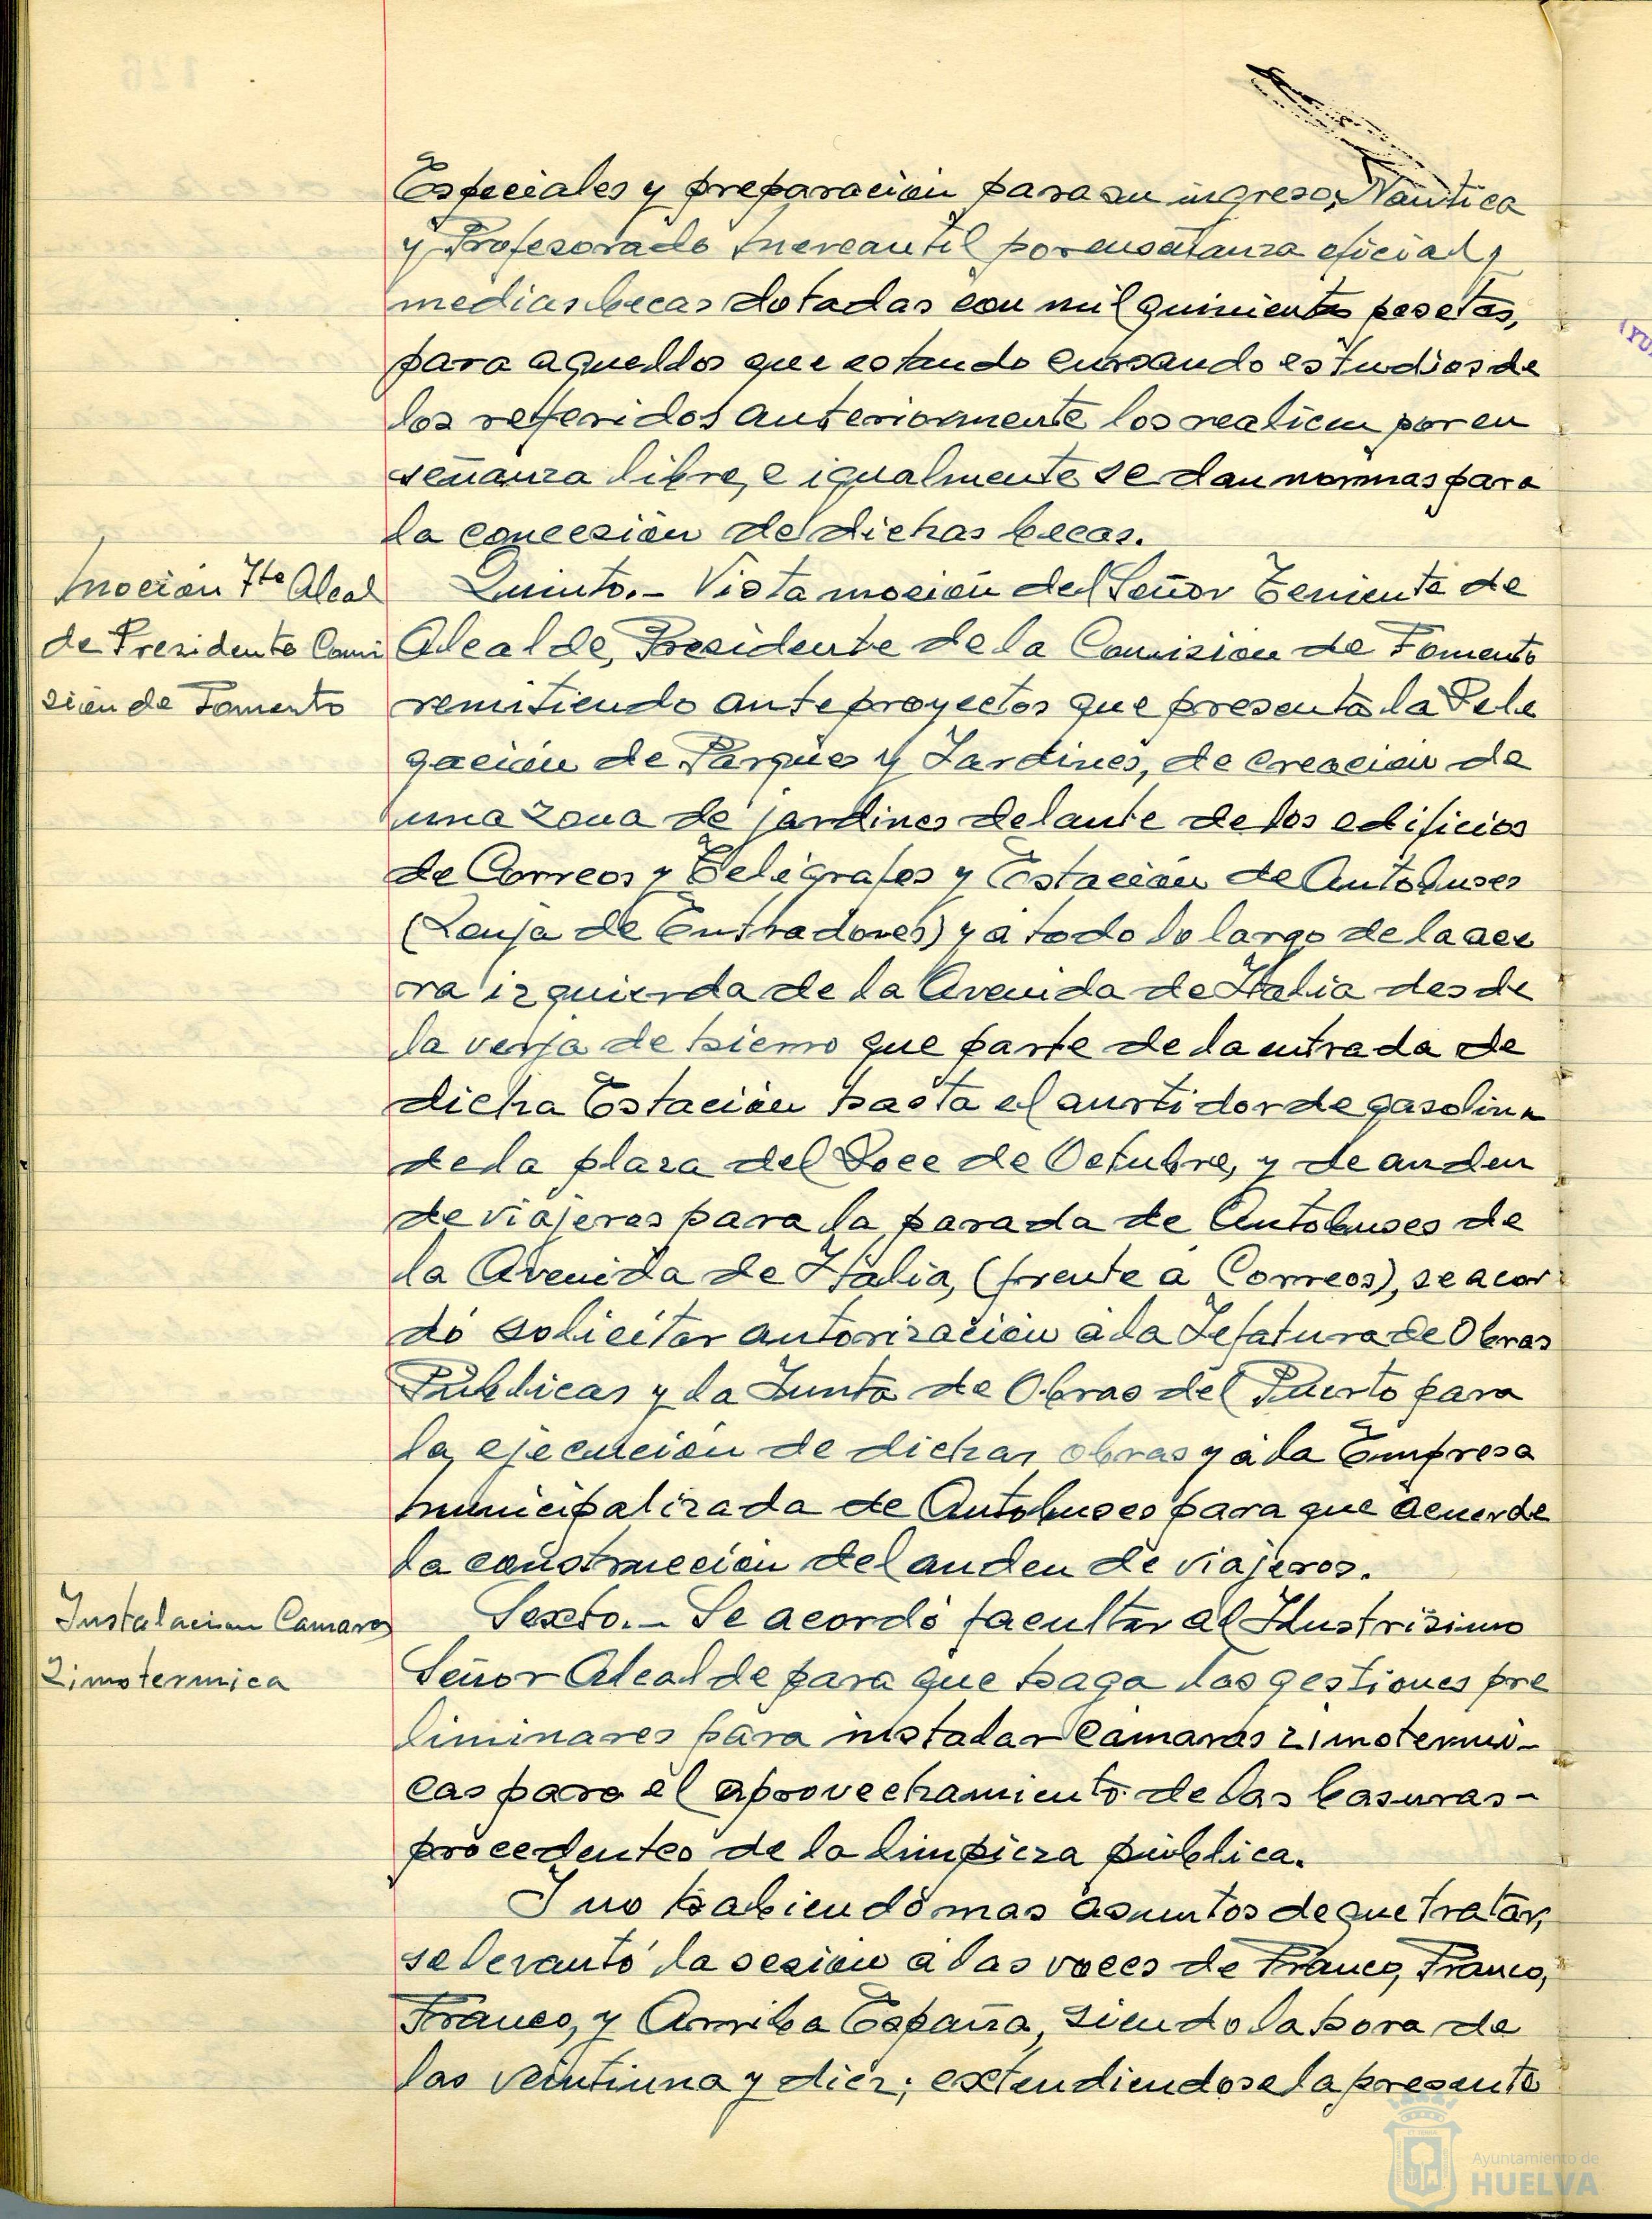 Especiales y preparación para su ingreso, Náutica
y Profesorado Mercantil por enseñanza oficial y
medias becas dotadas con mil quinientas pesetas,
para aquellos que estando cursando estudios de
los referidos anteriormente los realicen por en
señanza libre, e igualmente se dan normas para
la concesión de dichas becas.
Moción Tte Alcal
de Presidente Comi
sión de Fomento
Quinto.- Vista moción del Señor Teniente de
Alcalde, Presidente de la Comisión de Fomento
remitiendo anteproyectos que presenta la Dele
gación de Parques y Jardines, de creación de
una zona de jardines delante de los edificios
de Correos y Telégrafos y Estación de Autobuses
(Lonja de Entradores) y a todo lo largo de la ace
ra izquierda de la Avenida de Italia desde
la verja de hierro que parte de la entrada de
dicha Estación hasta el surtidor de gasolina
de la plaza del Doce de Octubre, y de anden
de viajeros para la parada de Autobuses de
la Avenida de Italia, (frente a Correos), se acor
dó solicitar autorización a la Jefatura de Obras
Públicas y la Junta de Obras del Puerto para
la ejecución de dichas obras y a la Empresa
municipalizada de Autobuses para que acuerde
la construcción del anden de viajeros.
Instalacion Camaras
Zimotermica
Sexto.- Se acordó facultar al Ilustrísimo
Señor Alcalde para que haga las gestiones pre
liminares para instalar cámaras zimotermi-
cas para el aprovechamiento de las basuras-
procedentes de la limpieza pública.
Y no habiendo mas asuntos de que tratar,
se levantó la sesión a las voces de Franco, Franco,
Franco, y Arriba España, siendo la hora de
las veintiuna y diez; extendiendose la presente
Ayuntamiento de
HUELVA